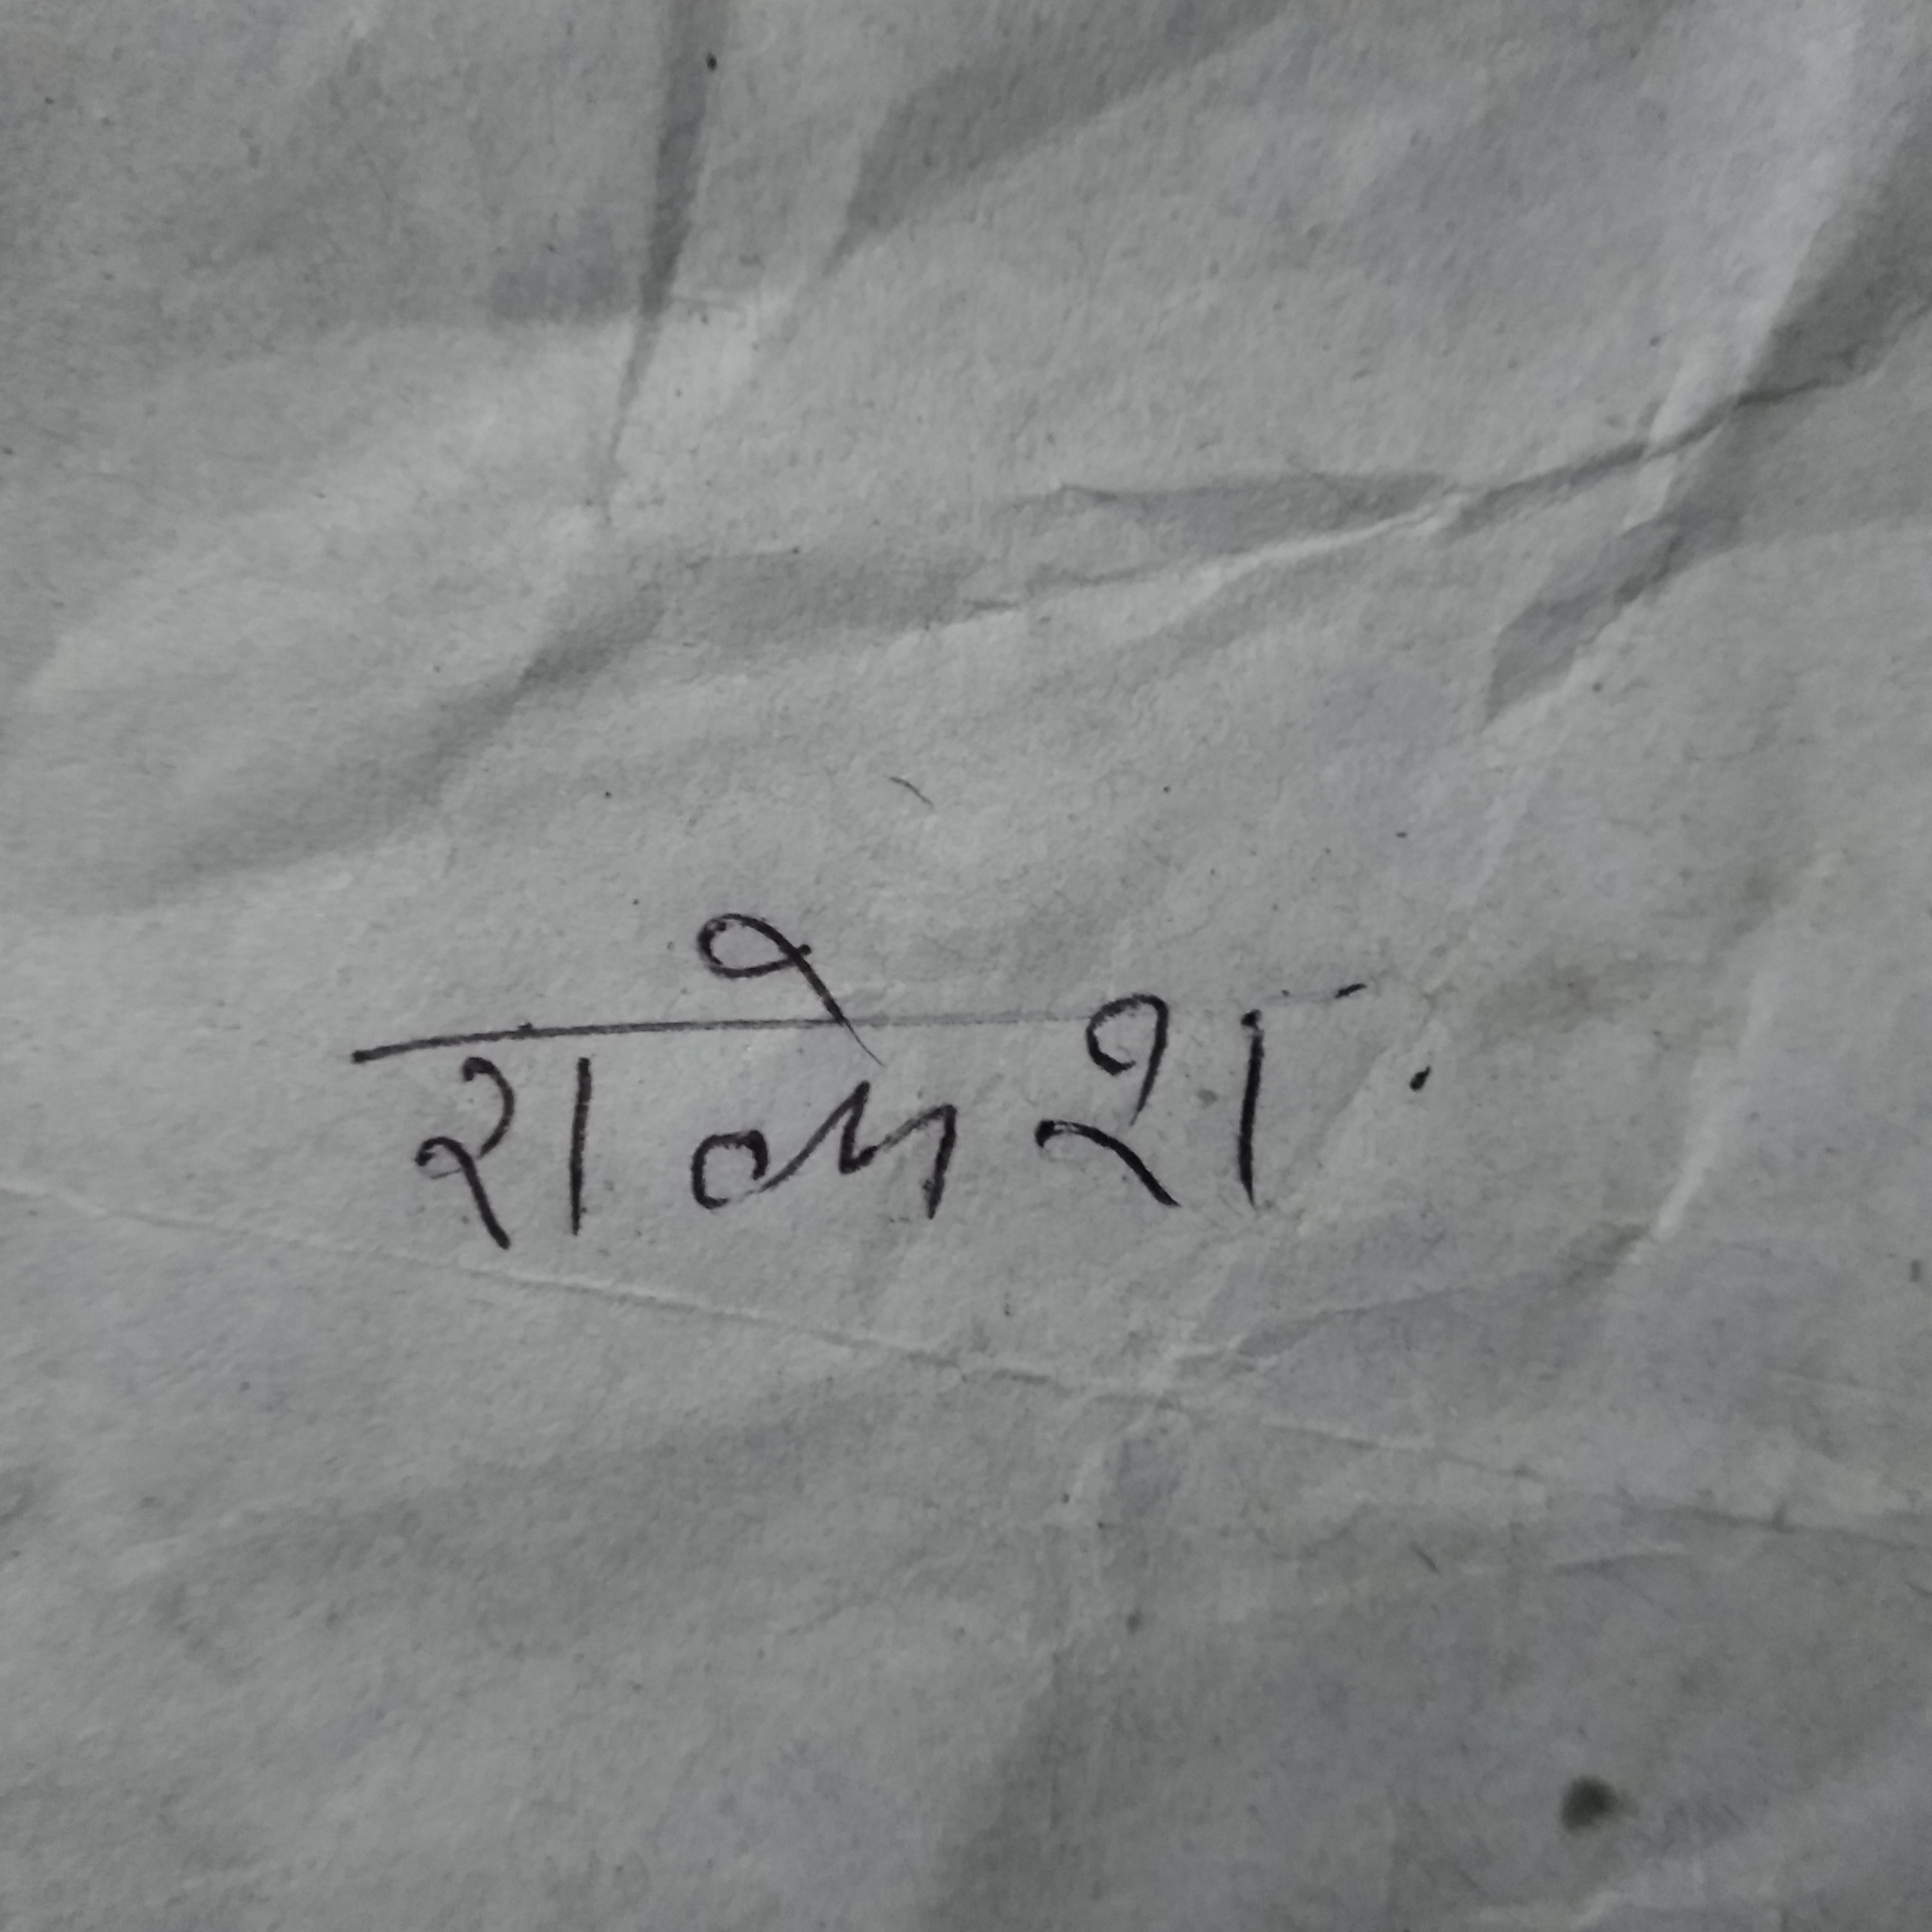 राकेश